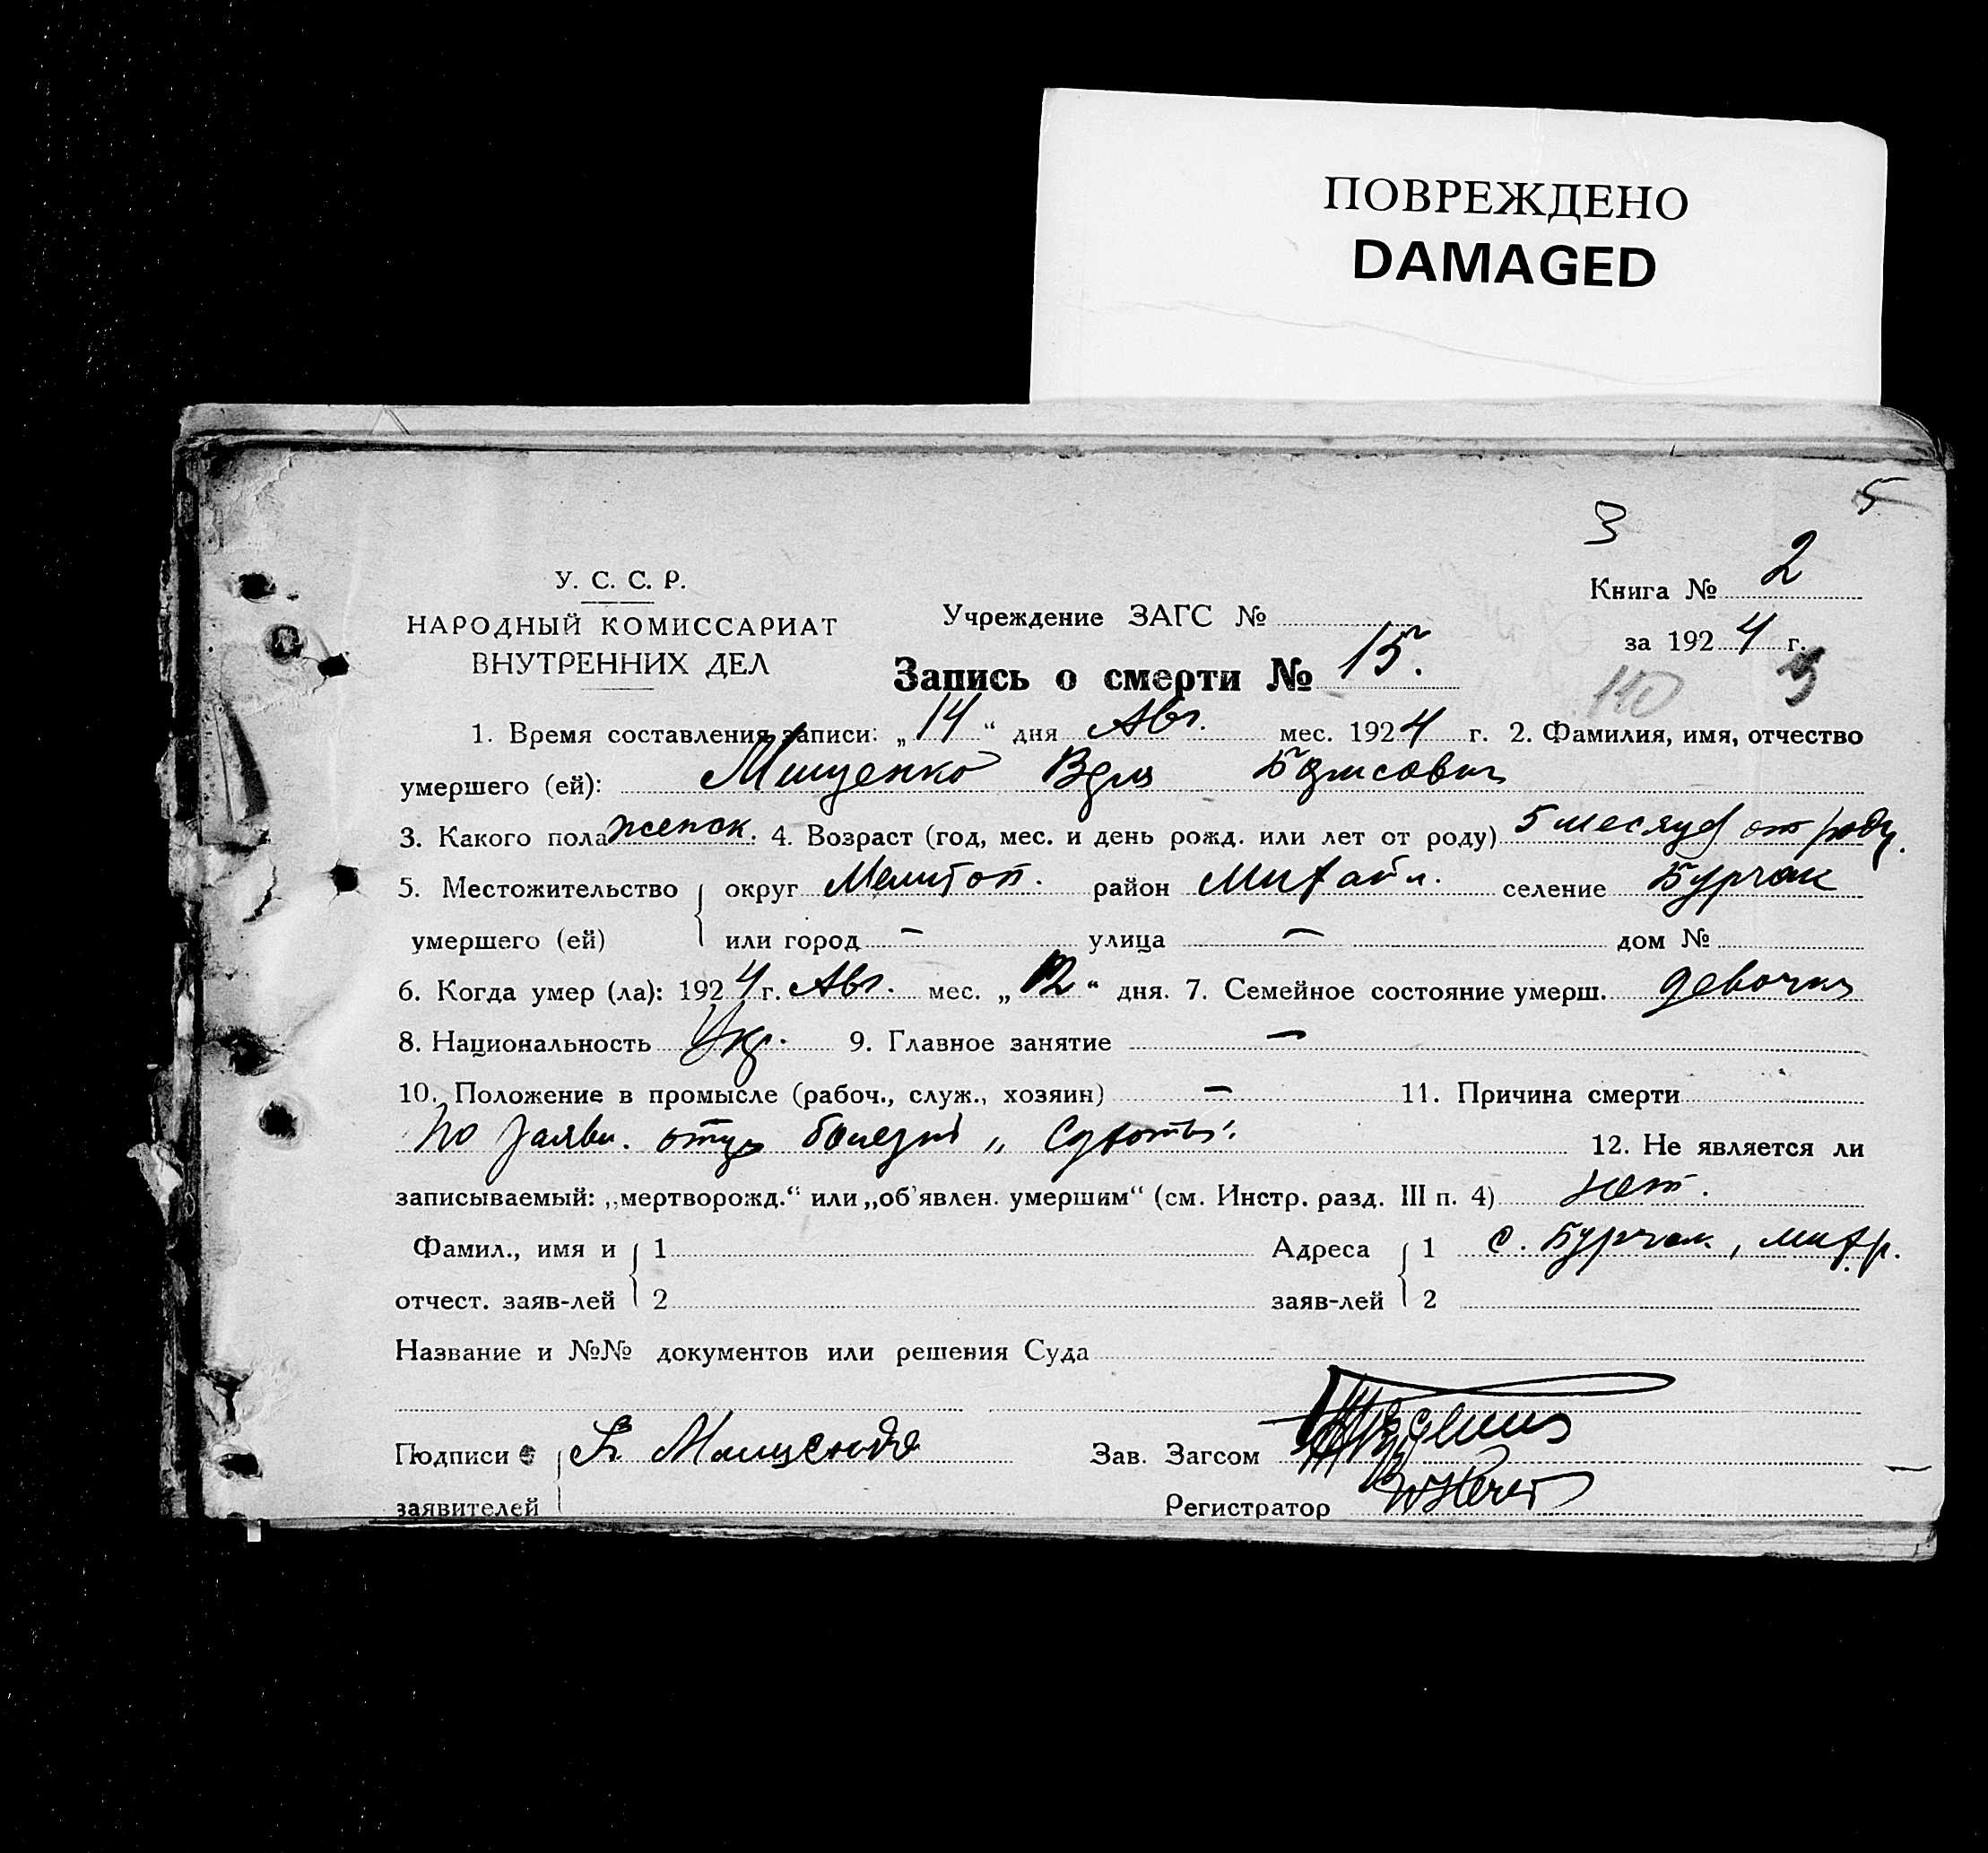 ПОВРЕЖДЕНО
DAMAGED
5
3
У. С. С. Р.
НАРОДНЫЙ КОМИССАРИАТ
ВНУТРЕННИХ ДЕЛ
Учреждение ЗАГС №
Книга № 2
за 1924 г.
Запись о смерти № 15.
110
1. Время составления записи: „14“ дня Авг. мес. 1924 г. 2. Фамилия, имя, отчество
умершего (ей): Мищенко Борисович
3. Какого пола женск. 4. Возраст (год, мес. и день рожд. или лет от роду) 5 месяцев от роду.
5. Местожительство округ Мелитоп. район Михайл. селение Бурчак
умершего (ей) или город – улица – дом №
6. Когда умер (ла): 1924 г. Авг. мес. „12“ дня. 7. Семейное состояние умерш. девочка
8. Национальность Укр. 9. Главное занятие –
10. Положение в промысле (рабоч., служ., хозяин) – 11. Причина смерти
По заявл. отца болезни „Сухоты“. 12. Не является ли
записываемый: „мертворожд.“ или „об'явлен. умершим“ (см. Инстр. разд. III п. 4) нет.
Фамил., имя и 1 Адреса 1 с. Бурчак, Мих. р.
отчест. заяв-лей 2 заяв-лей 2
Название и №№ документов или решения Суда
Подписи Зав. Загсом
заявителей Регистратор